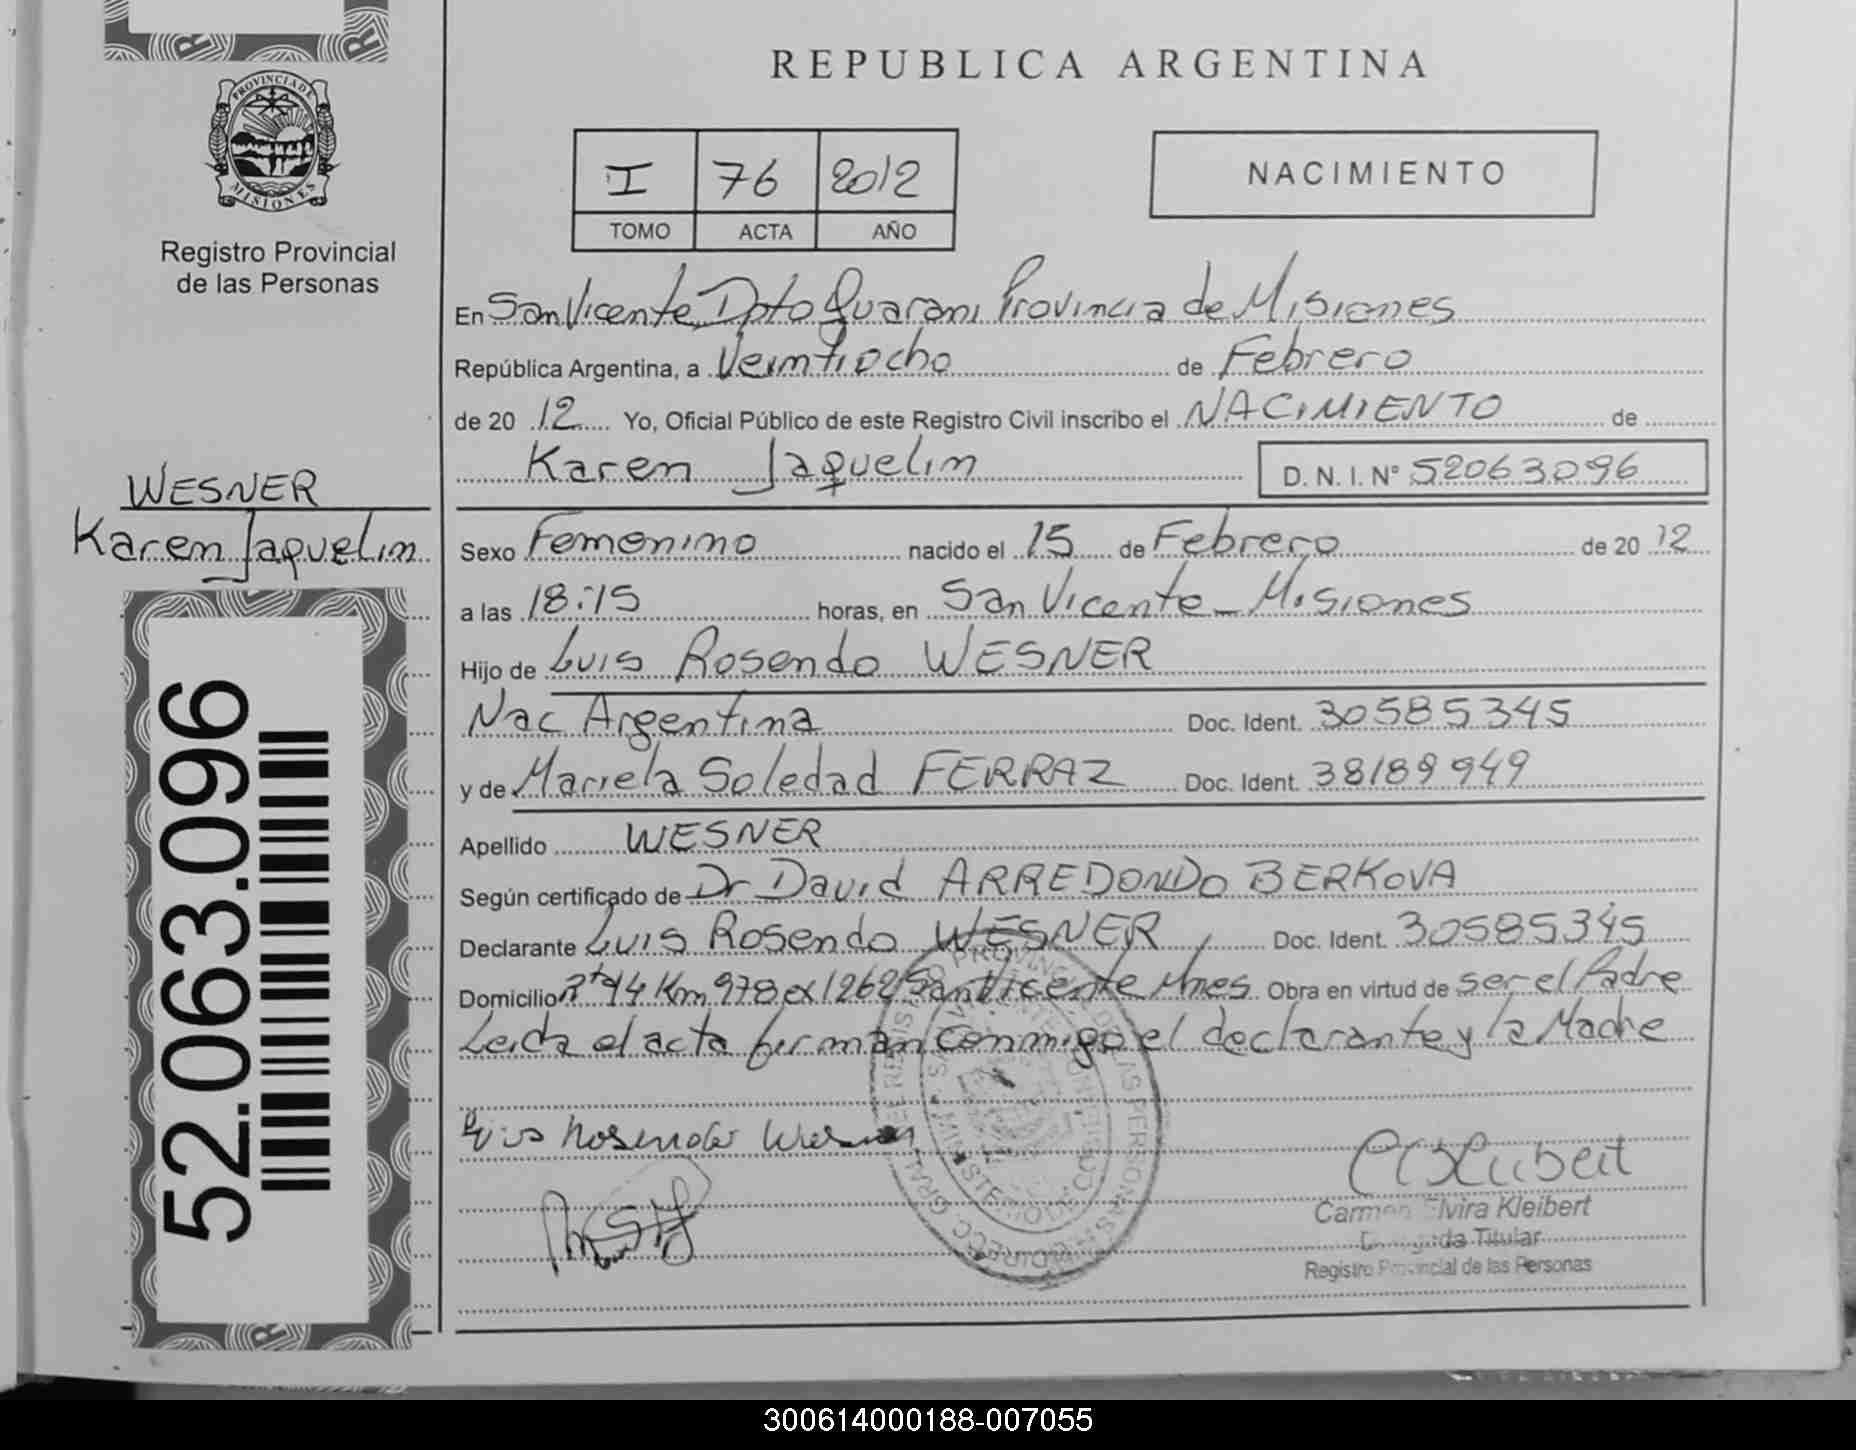 REPUBLICA ARGENTINA
PROVINCIA DE
MISIONES
Registro Provincial
de las Personas
I 76 2012
TOMO ACTA AÑO
NACIMIENTO
En San Vicente Dpto Guarani Provincia de Misiones
República Argentina, a Veintiocho de Febrero
de 20 12 Yo, Oficial Público de este Registro Civil inscribo el NACIMIENTO de
Karen Jaquelin D. N. I. Nº 52063096
WESNER
Karen Jaquelin
Sexo Femenino nacido el 15 de Febrero de 20 12
a las 18:15 horas, en San Vicente - Misiones
Hijo de Luis Rosendo WESNER
Nac Argentina Doc. Ident. 30585345
y de Mariela Soledad FERRAZ Doc. Ident. 38189949
Apellido WESNER
Según certificado de Dr David ARREDONDO BERKOVA
Declarante Luis Rosendo WESNER Doc. Ident. 30585345
Domicilio 14 Km 978 ex 1262 San Vicente Mnes Obra en virtud de ser el Padre
Leida el acta firman conmigo el declarante y la Madre
52.063.096
Luis Rosendo Wesner
Carmen Elvira Kleibert
Titular
Registro Provincial de las Personas
300614000188-007055